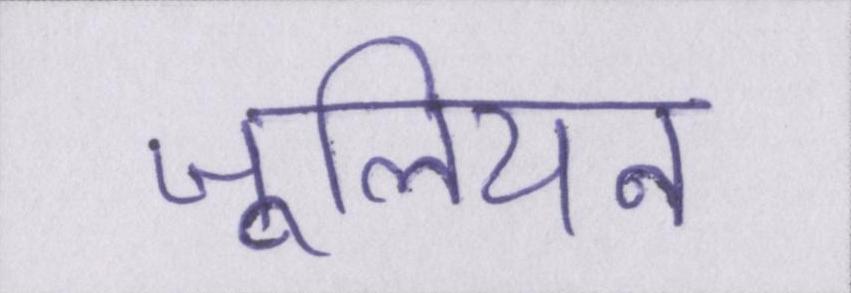 जूलियन